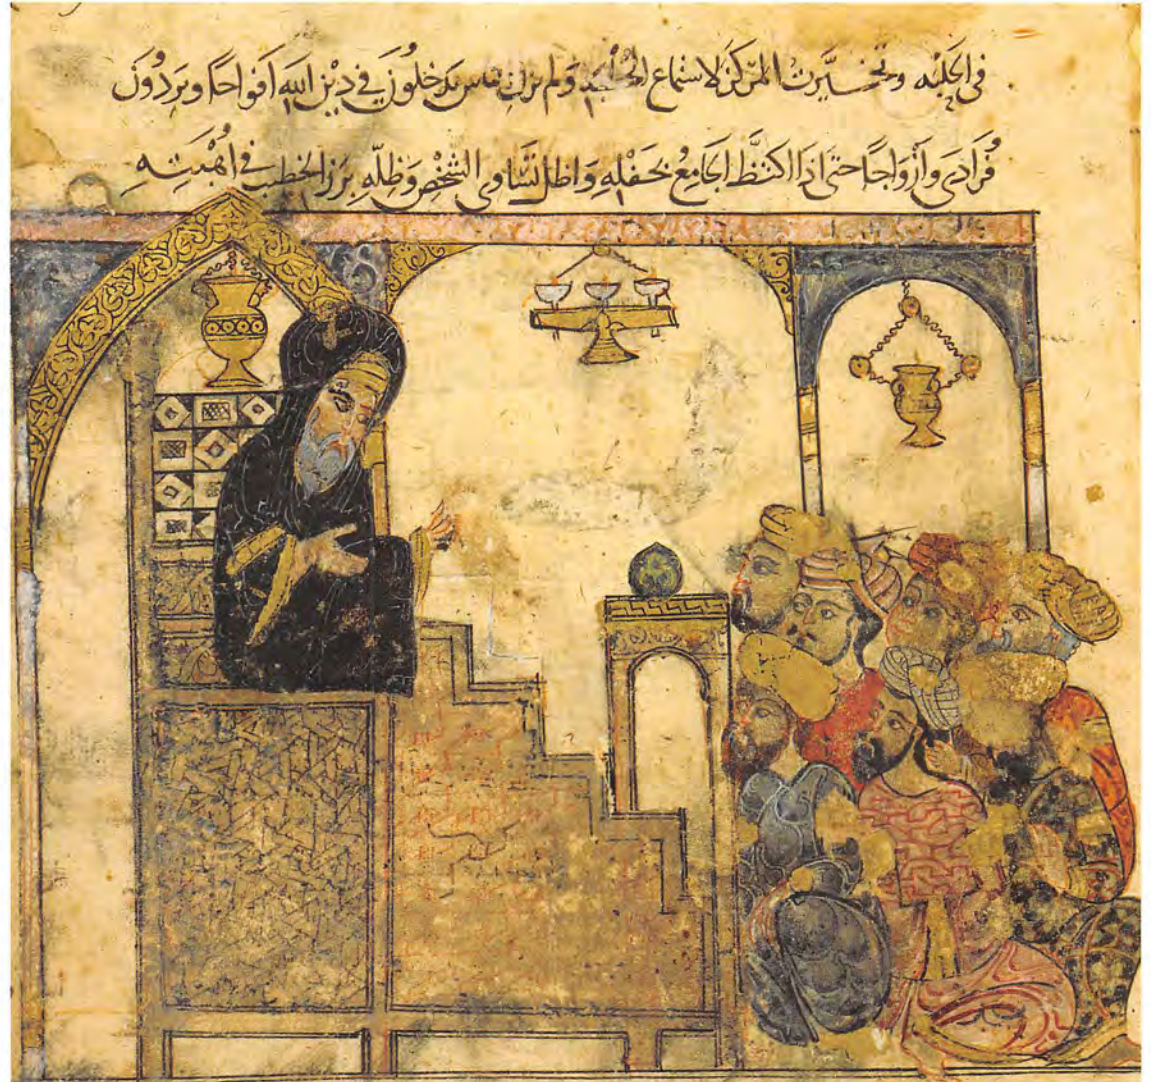 في الحلبه وتخيَّرتُ المركز لاستماع الخطبه وَلم يزل الناس يدخلُونَ في دِيْن اللهِ اَفواجًا ويَردُونَ
فُرَادَى وَاَزْوَاجًا حتى اذا اكتظَّ الجَامعُ بحَفْلِهِ وَاظلَّ تَسَاوى الشَّخْصِ وَظِلّهِ بَرَزَ الخطيب في اُهْبَتِهِ